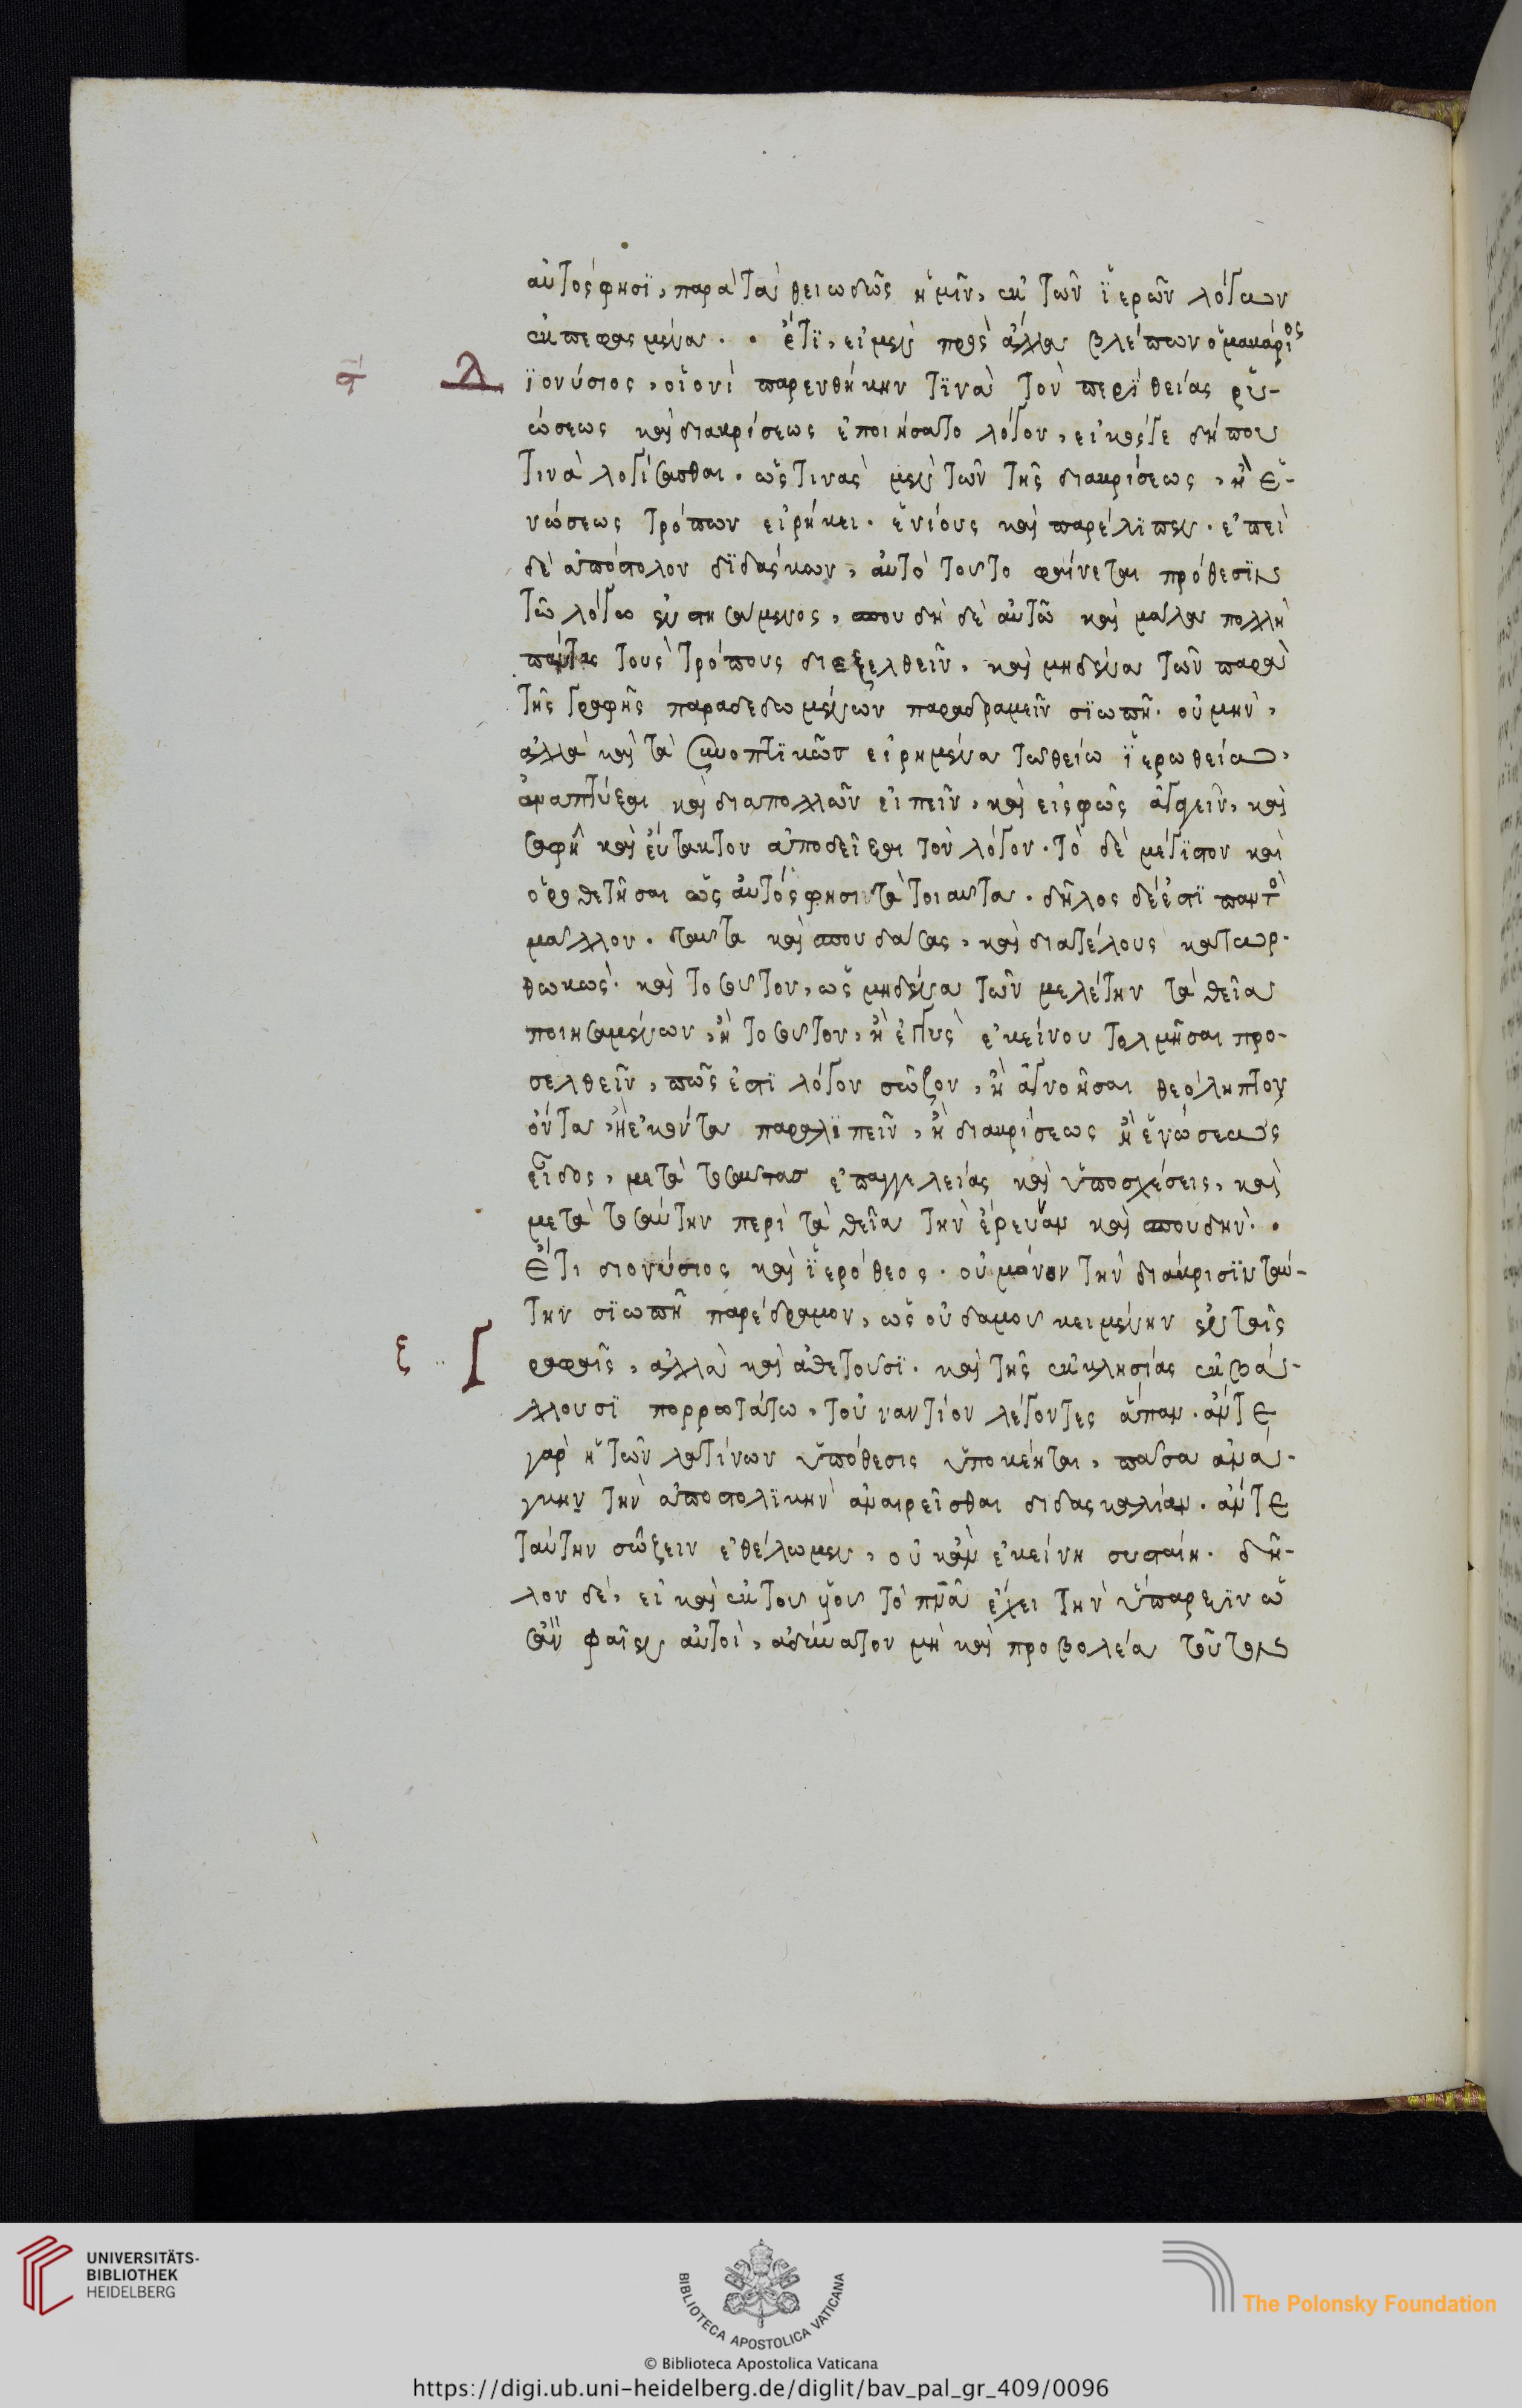 αὐτός φησϊ, παρα τὰ θειωδῶς ἡμῖν, ἐκ τῶν ϊερῶν λόγων
ἐκπεφασμένα. . ἔτϊ, εἰ μὲν προς ἄλλα βλέπων ὁ μακάριος
ϊονύσιος, οἷονί παρενθήκην τϊνὰ τὸν περϊ θείας
ώσεως καὶ διακρίσεως ἐποιήσατο λόγον, εἰκός γε δήπου
τινὰ λογίσασθαι. ὡς τινας μὲν τῶν τῆς διακρίσεως, ἢ ἑ-
νώσεως τρόπων εἰρήκει. ἐνίους καὶ παρέλϊπεν. ἐπεὶ
δὲ ἀπόστολον δϊδάσκων, ἀυτὸ τοῦτο φαίνεται πρόθεσϊν
τῶ λόγω ἐνστησάμενος, σπουδὴ δὲ αὐτῶ καὶ μάλα πολλὴ
πάντας τοὺς τρόπους διεξελθεῖν, καὶ μηδένα τῶν παρὰ
τῆς γραφῆς παραδεδομένων παραδραμεῖν σϊωπῆ. οὐ μὴν,
ἀλλὰ καὶ τὰ συνοπτϊκῶσ εἰρημένα τῶ θείω ϊεροθείω,
ἀναπτύξαι καὶ δια πολλῶν εἰπεῖν, καὶ εἰς φῶς ἄγειν, καὶ
σαφῆ καὶ εὔτακτον ἀποδεῖξαι τὸν λόγον. τὸ δὲ μέγϊστον καὶ
ὁροθετῆσαι ὡς ἀυτός φησι τὰ τοιαῦτα. δῆλος δέ ἐστϊ παντὸ
μᾶλλον. ταῦτα καὶ σπουδάσας, καὶ δια τέλους κατωρ-
θωκώς. καὶ τοσοῦτον, ὡς μηδένα τῶν μελέτην τὰ θεῖα
ποιησαμένων, ἢ τοσοῦτον, ἢ ἐγγὺς ἐκείνου τολμῆσαι προ-
σελθεῖν, πῶς ἐστϊ λόγον σῶζον, ἢ ἀγνοῆσαι θεόληπτον
ὄντα, ἢ ἑκόντα παραλϊπεῖν, ἢ διακρίσεως ἢ ἑνώσεως
εἶδος, μετὰ τοσαυτασ ἐπαγγελείας καὶ ὑποσχέσεις, καὶ
μετὰ τοσαύτην περὶ τὰ θεῖα τὴν ἔρευναν καὶ σπουδὴν. .
Ἔτι διονύσιος καὶ ϊερόθεος. οὐ μόνον τὴν διάκρισϊν ταύ-
την σϊωπῆ παρέδραμον, ὡς οὐδαμοῦ κειμένην ἐν ταῖς
ραφαῖς, ἀλλὰ καὶ ἀθετοῦσϊ. καὶ τῆς ἐκκλησίας ἐκβάλ-
λουσϊ πορρωτάτω, τοὐναντίον λέγοντες ἅπαν. ἄν τε
γαρ ἡ τῶν λατίνων ὑπόθεσις ὑποκέηται, πᾶσα ἀνά-
γκην τὴν ἀποστολϊκὴν ἀναιρεῖσθαι διδασκαλίαν. ἄν τε
ταύτην σώζειν ἐθέλωμεν, οὐκ ἂν ἐκείνη συσταίη. δῆ-
λον δέ, εἰ καὶ ἐκ τοῦ υἱοῦ τὸ πνα ἔχει τὴν ὕπαρξϊν ὡ
ἂν φαῖεν αὐτοὶ, ἀδύνατον μὴ καὶ προβολέα
ξ
UNIVERSITÄTS-
BIBLIOTHEK
HEIDELBERG
BIBLIOTECA APOSTOLICA VATICANA
The Polonsky Foundation
© Biblioteca Apostolica Vaticana
https://digi.ub.uni-heidelberg.de/diglit/bav_pal_gr_409/0096